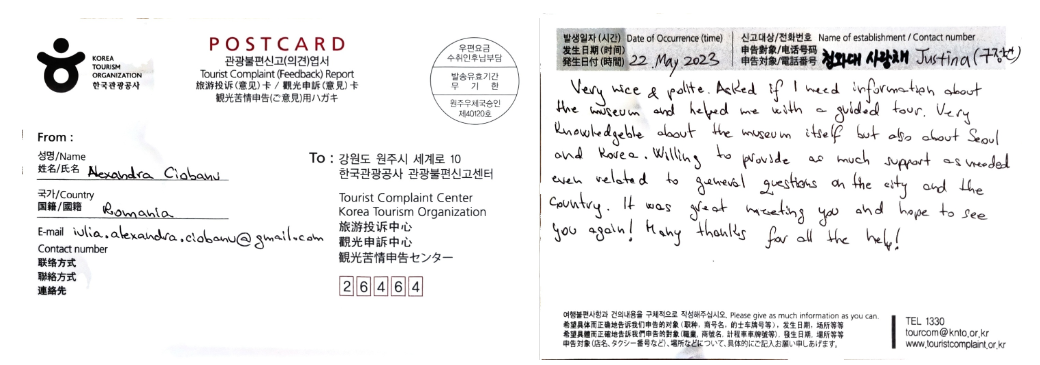 KOREA
TOURISM
ORGANIZATION
한국관광공사
POSTCARD
관광불편신고(의견)엽서
Tourist Complaint (Feedback) Report
旅游投诉(意见)卡 / 觀光申訴(意見)卡
観光苦情申告(ご意見)用ハガキ
우편요금
수취인후납부담
발송유효기간
무 기 한
원주우체국승인
제40120호
From :
성명/Name
姓名/氏名 Alexandra Ciobanu
국가/Country
国籍/國籍 Romania
E-mail iulia.alexandra.ciobanu@gmail.com
Contact number
联络方式
聯絡方式
連絡先
To : 강원도 원주시 세계로 10
한국관광공사 관광불편신고센터
Tourist Complaint Center
Korea Tourism Organization
旅游投诉中心
觀光申訴中心
観光苦情申告センター
26464
발생일자 (시간) Date of Occurrence (time)
发生日期 (时间)
発生日付 (時間) 22 May 2023
신고대상/전화번호 Name of establishment / Contact number
申告對象/电话号码
申告対象/電話番号 청와대 사랑채 Justina
Very nice & polite. Asked if I need information about
the museum and helped me with a guided tour. Very
knowledgeble about the museum itself but also about Seoul
and Korea. Willing to provide as much support as needed
even related to general questions on the city and the
country. It was great meeting you and hope to see
you again! Many thanks for all the help!
여행불편사항과 건의내용을 구체적으로 작성해주십시오. Please give as much information as you can.
希望具体而正确地告诉我们申告的对象 (职种, 商号名, 的士车牌号等), 发生日期, 场所等等
希望具體而正確地告訴我們申告的對象 (職業, 商號名, 計程車車牌號等), 發生日期, 場所等等
申告対象 (店名、タクシー番号など)、場所などについて、具体的にご記入お願い申しあげます。
TEL 1330
tourcom@knto.or.kr
www.touristcomplaint.or.kr